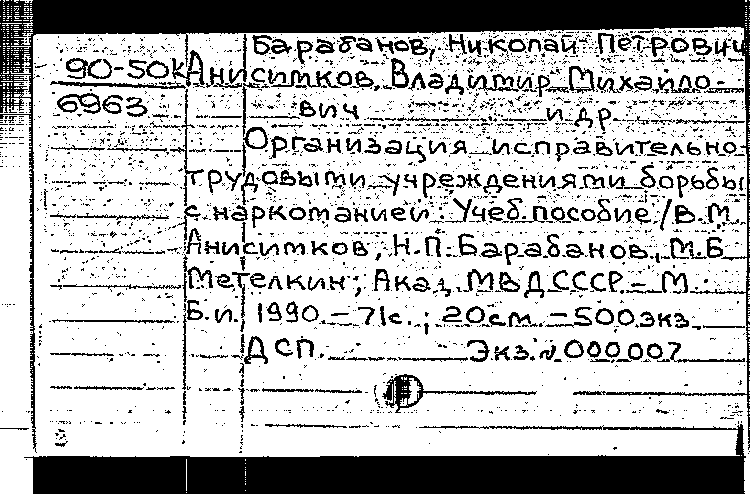 Барабанов, Николай Петрович
90-50к Анисимков, Владимир Михайло-
6963 вич и др.
Организация исправительно-
трудовыми учреждениями борьбы
с наркоманией: Учеб. пособие / В.М.
Анисимков, Н.П. Барабанов, М.Б
Метелкин; Акад. МВД СССР. - М.:
Б.и., 1990. - 71с.; 20см. - 500экз.
ДСП. Экз.№000007